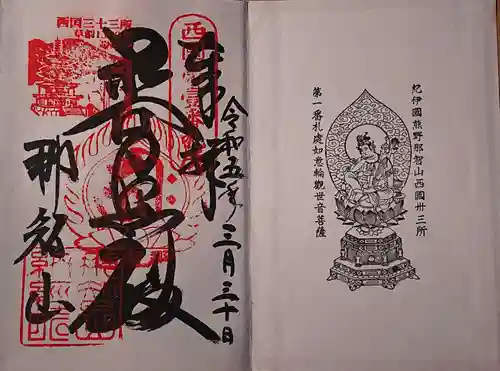 紀伊國熊野那智山西國卅三所
第一番札處如意輪觀世音菩薩
西国三十三所
草創1
西国
令和五年三月三十日
奉拝
普照殿
那智山